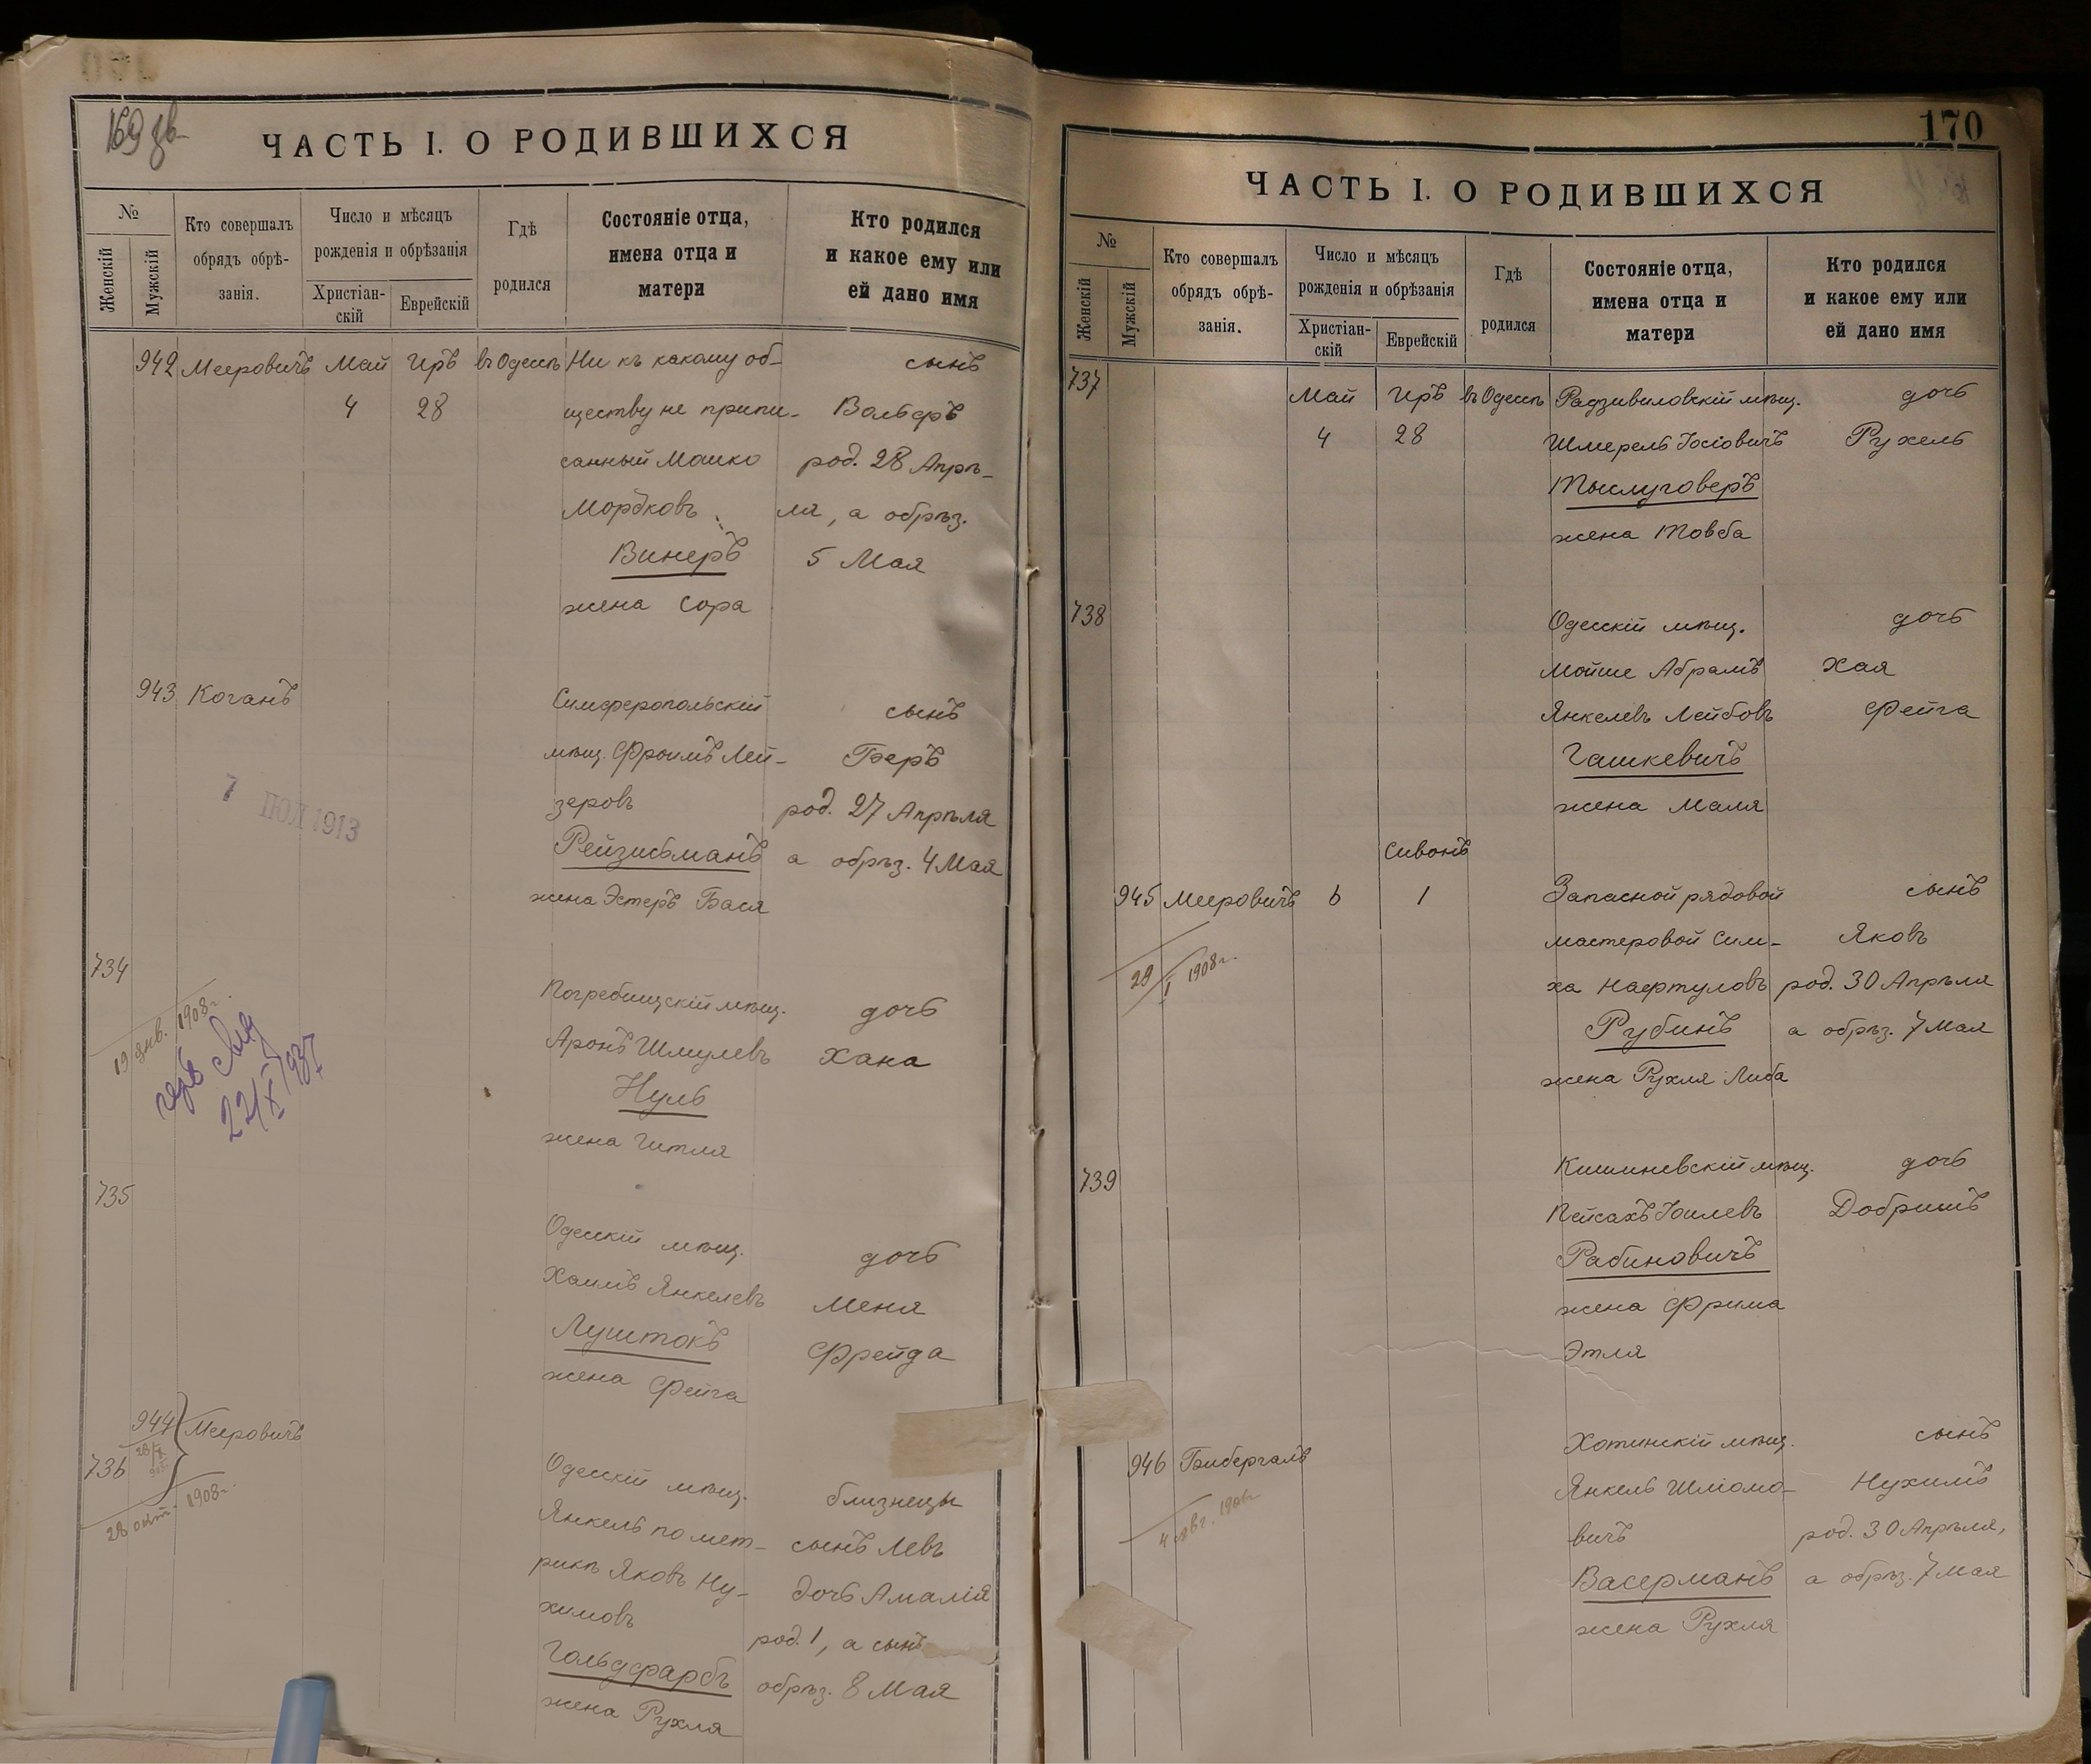 169 зв
ЧАСТЬ I. О РОДИВШИХСЯ
№
Женскій
Мужскій
Кто совершалъ
обрядъ обрѣ-
занія.
Число и мѣсяцъ
рожденія и обрѣзанія
Христіан-
скій
Еврейскій
Гдѣ
родился
Состояніе отца,
имена отца и
матери
Кто родился
и какое ему или
ей дано имя
942 Мееровичъ Май Иръ въ Одессѣ Ни къ какому об- сынъ
4 28 ществу не припи- Вольфъ
санный Мошко род. 28 Апрѣ-
Мордковъ ля, а обрѣз.
Винеръ 5 Мая
жена Сора
943 Коганъ Симферопольскій сынъ
мѣщ. Фроимъ Лей- Беръ
зеровъ род. 27 Апрѣля
7 ІЮЛ 1913
Рейзисьманъ а обрѣз. 4 Мая
жена Эстеръ Бася
734 Погребищскій мѣщ. дочь
19 янв. 1908г.
Аронъ Шмулевъ Хана
22/X 1937
Нуль
жена Гитля
735 Одесскій мѣщ. дочь
Хаимъ Янкелевъ Меня
Луштокъ Фрейда
жена Фейга
944 Мееровичъ
736
28 окт. 1908г.
Одесскій мѣщ. близнецы
Янкель по мет- сынъ Левъ
рикѣ Яковъ Ну- дочь Амалія
химовъ род. 1, а сынъ
Гольдфарбъ обрѣз. 8 Мая
жена Рухля
170
ЧАСТЬ I. О РОДИВШИХСЯ
№
Женскій
Мужскій
Кто совершалъ
обрядъ обрѣ-
занія.
Число и мѣсяцъ
рожденія и обрѣзанія
Христіан-
скій
Еврейскій
Гдѣ
родился
Состояніе отца,
имена отца и
матери
Кто родился
и какое ему или
ей дано имя
737 Май Иръ въ Одессѣ Радзивиловскій мѣщ. дочь
4 28 Шмерель Іосіовичъ Рухель
Тыслуговеръ
жена Товба
738 Одесскій мѣщ. дочь
Мойше Абрамъ Хая
Янкелевъ Лейбовъ Фейга
Гашкевичъ
жена Маля
Сивонъ
945 Мееровичъ 6 1 Запасной рядовой сынъ
мастеровой Сим- Яковъ
28/I 1908г.
ха Нафтуловъ род. 30 Апрѣля
Рубинъ а обрѣз. 7 Мая
жена Рухля Либа
739 Кишиневскій мѣщ. дочь
Пейсахъ Іоилевъ Добришъ
Рабиновичъ
жена Фрима
Этля
946 Бибергалъ Хотинскій мѣщ. сынъ
Янкель Шліомо- Нухимъ
вичъ род. 30 Апрѣля,
Васерманъ а обрѣз. 7 Мая
жена Рухля